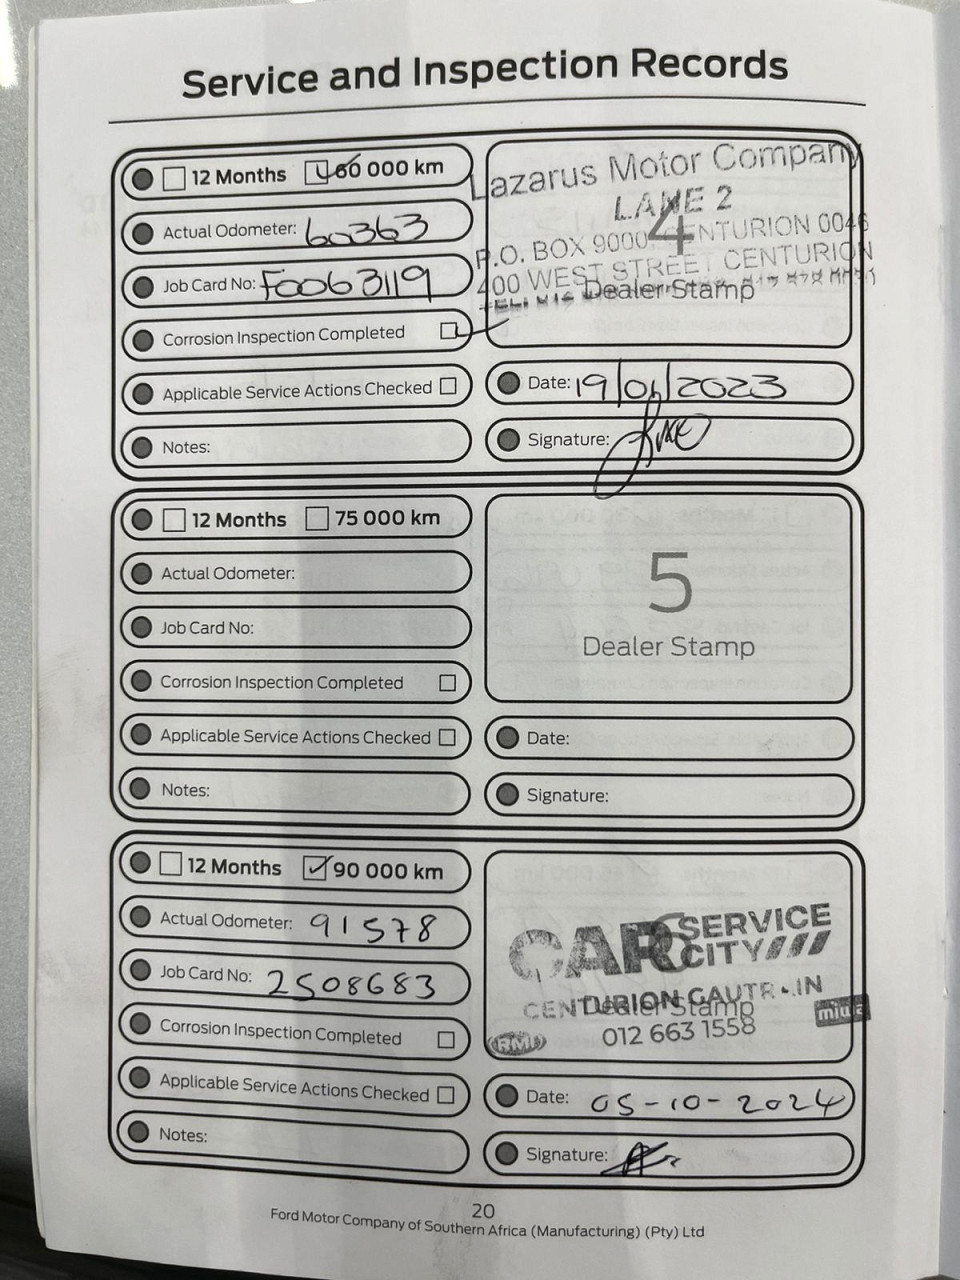 Service and Inspection Records
12 Months 60 000 km
Lazarus Motor Company
LANE 2
4
Actual Odometer: 60363
P.O. BOX 9000 CENTURION 0046
Job Card No: F0063119
400 WEST STREET CENTURION
Dealer Stamp
Corrosion Inspection Completed
Applicable Service Actions Checked
Date: 19/01/2023
Notes:
Signature:
12 Months 75 000 km
5
Dealer Stamp
Actual Odometer:
Job Card No:
Corrosion Inspection Completed
Applicable Service Actions Checked
Date:
Notes:
Signature:
12 Months 90 000 km
CAR SERVICE
CITY
Actual Odometer: 91578
Job Card No: 2508683
CENTURION GAUTRAIN
Dealer Stamp
miwa
012 663 1558
RMI
Corrosion Inspection Completed
Applicable Service Actions Checked
Date: 05-10-2024
Notes:
Signature:
20
Ford Motor Company of Southern Africa (Manufacturing) (Pty) Ltd